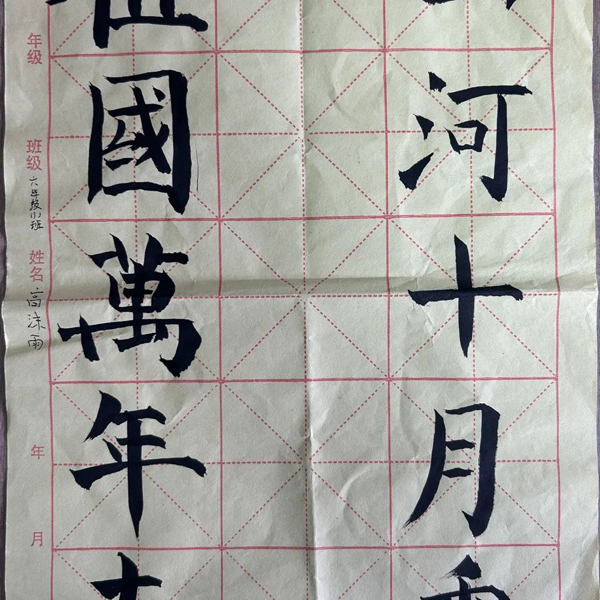 河十月
祖國萬年
年级
班级 六年级(1)班
姓名 高沫雨
年
月